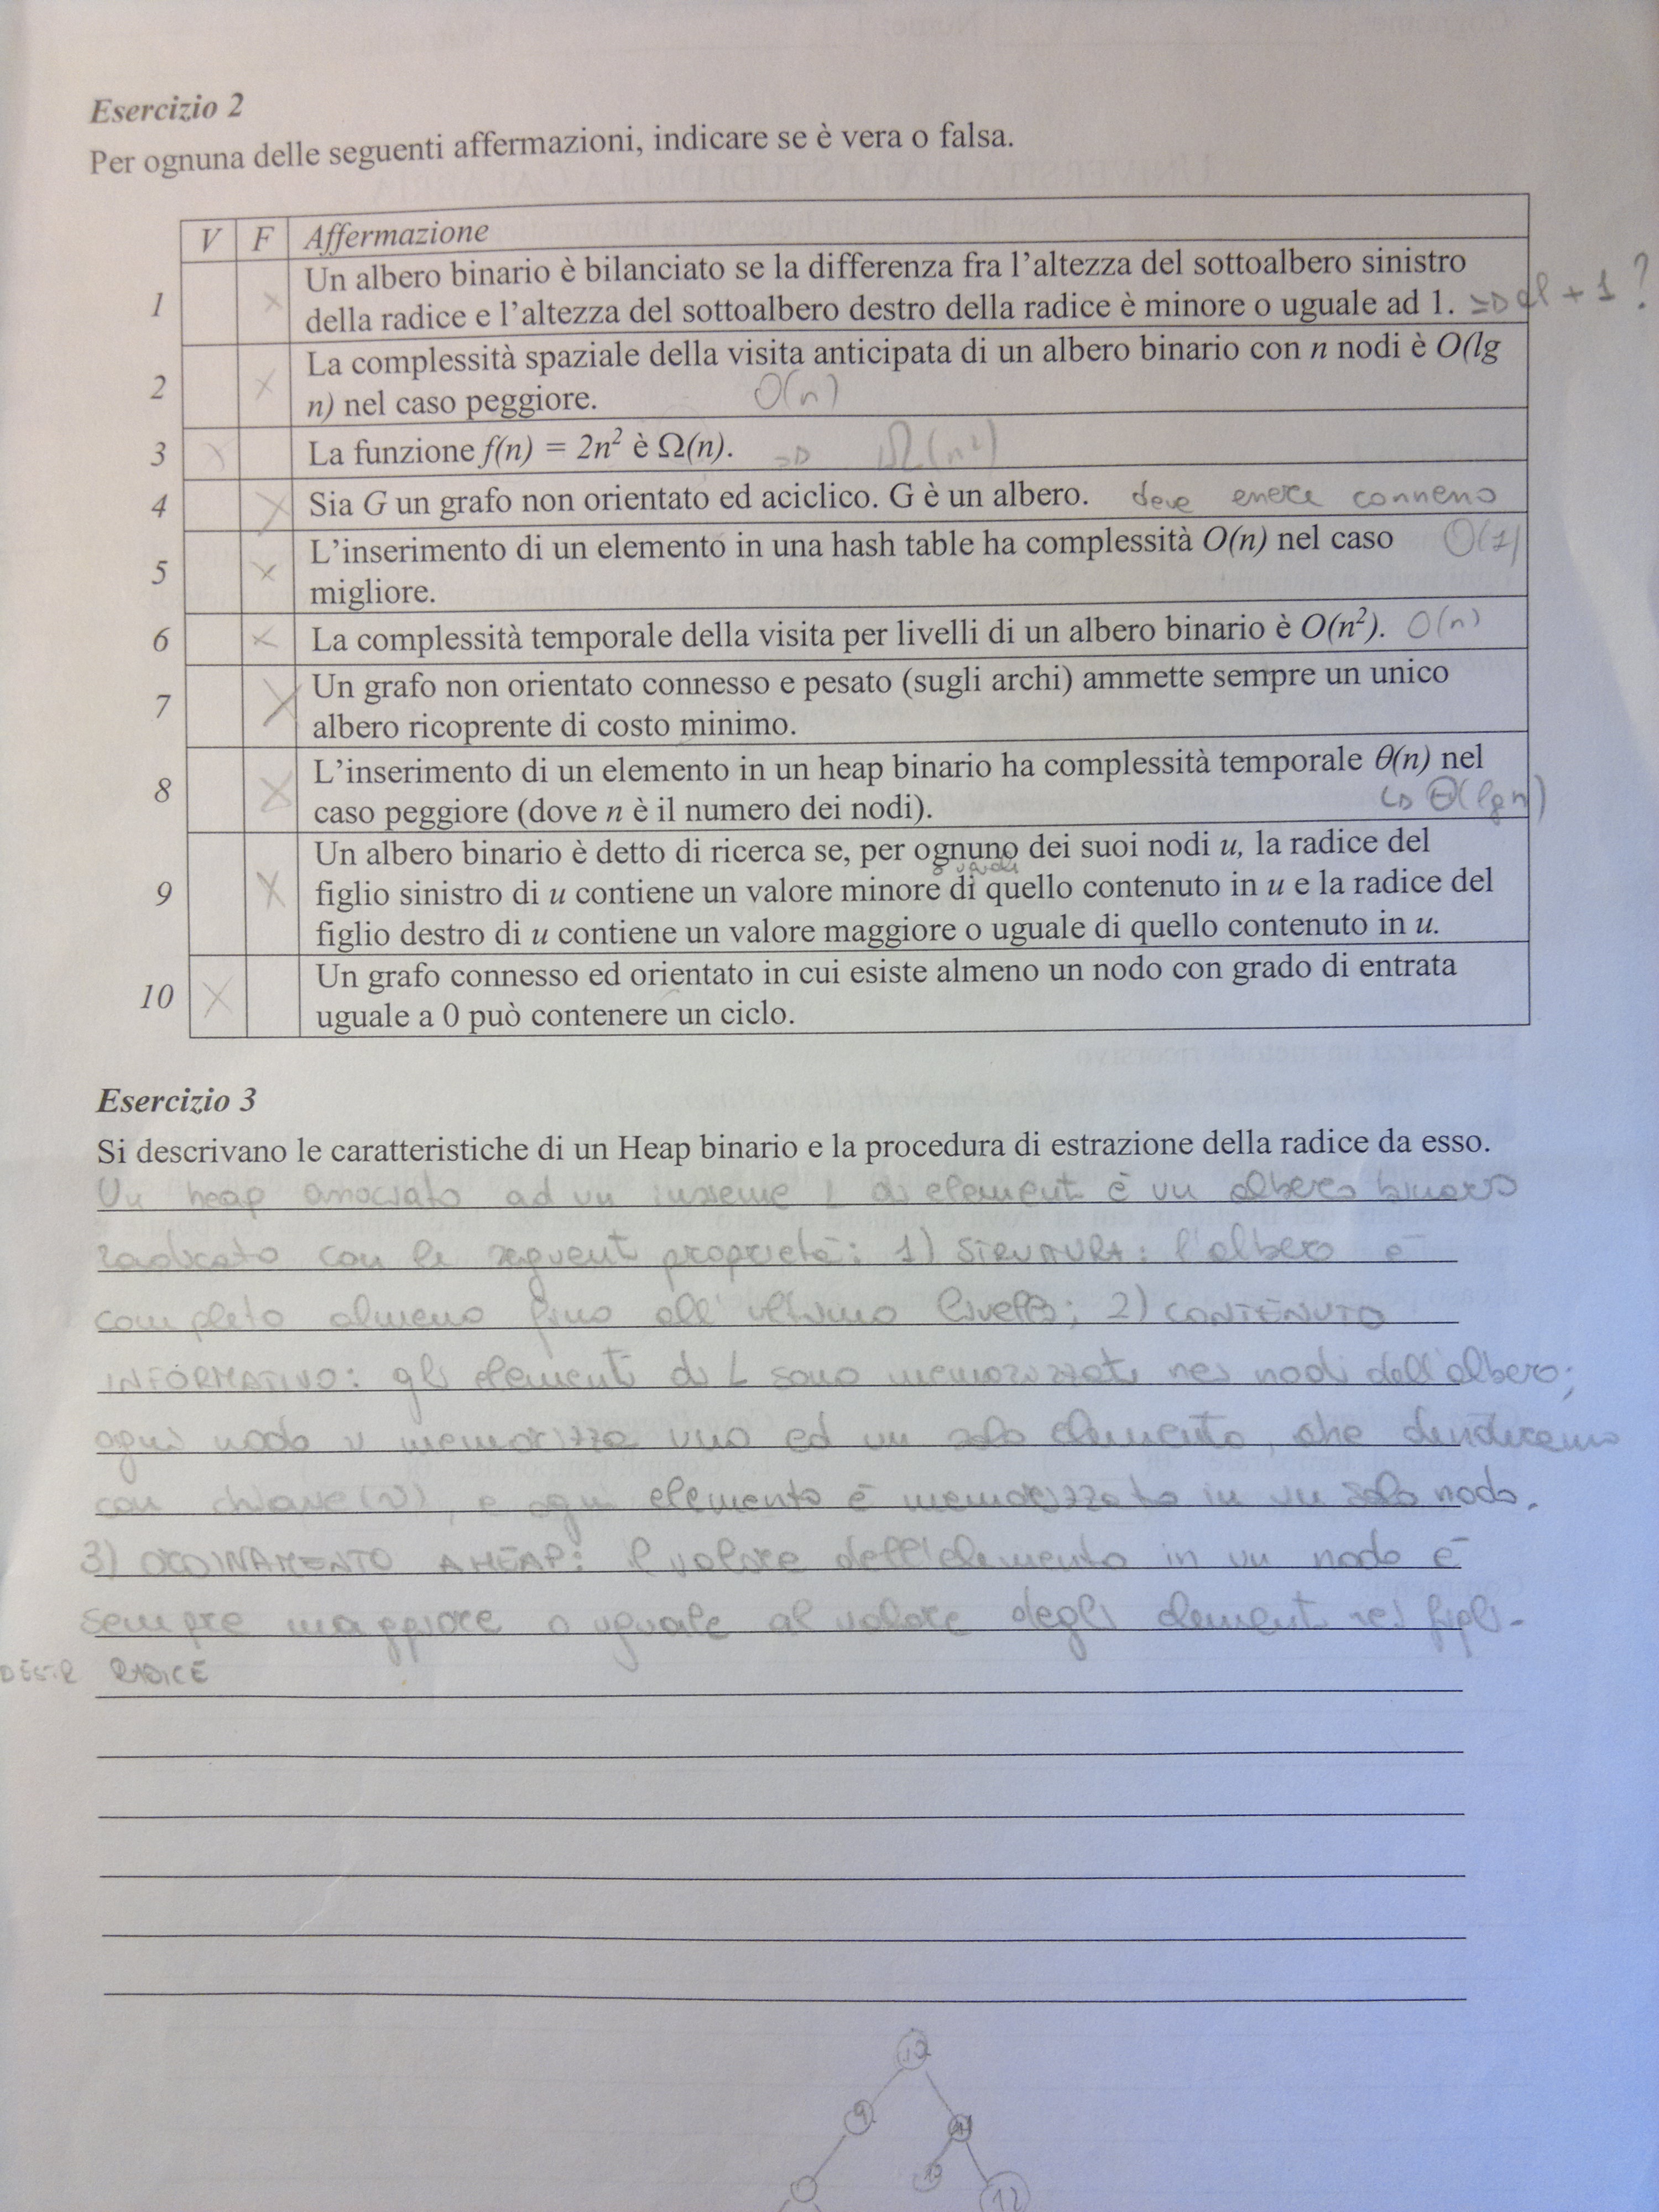 Esercizio 2
Per ognuna delle seguenti affermazioni, indicare se è vera o falsa.
V F Affermazione
Un albero binario è bilanciato se la differenza fra l'altezza del sottoalbero sinistro
1 X della radice e l'altezza del sottoalbero destro della radice è minore o uguale ad 1. + 1 ?
La complessità spaziale della visita anticipata di un albero binario con n nodi è O(lg
2 X n) nel caso peggiore. O(n)
3 X La funzione f(n) = 2n² è Ω(n). => Ω(n²)
4 X Sia G un grafo non orientato ed aciclico. G è un albero. deve essere connesso
L'inserimento di un elemento in una hash table ha complessità O(n) nel caso O(1)
5 X migliore.
6 X La complessità temporale della visita per livelli di un albero binario è O(n²). O(n)
Un grafo non orientato connesso e pesato (sugli archi) ammette sempre un unico
7 X albero ricoprente di costo minimo.
L'inserimento di un elemento in un heap binario ha complessità temporale θ(n) nel
8 X caso peggiore (dove n è il numero dei nodi). Θ(lg n)
Un albero binario è detto di ricerca se, per ognuno dei suoi nodi u, la radice del
9 X figlio sinistro di u contiene un valore minore di quello contenuto in u e la radice del
figlio destro di u contiene un valore maggiore o uguale di quello contenuto in u.
Un grafo connesso ed orientato in cui esiste almeno un nodo con grado di entrata
10 X uguale a 0 può contenere un ciclo.
Esercizio 3
Si descrivano le caratteristiche di un Heap binario e la procedura di estrazione della radice da esso.
Un heap associato ad un insieme L di elementi è un albero binario
radicato con le seguenti proprietà: 1) STRUTTURA: l'albero è
completo almeno fino all'ultimo livello; 2) CONTENUTO
INFORMATIVO: gli elementi di L sono memorizzati nei nodi dell'albero;
ogni nodo v memorizza uno ed un solo elemento, che denoteremo
con chiave(v), e ogni elemento è memorizzato in un solo nodo.
3) ORDINAMENTO A HEAP: il valore dell'elemento in un nodo è
sempre maggiore o uguale al valore degli elementi nei figli.
RADICE
10
9
13
12